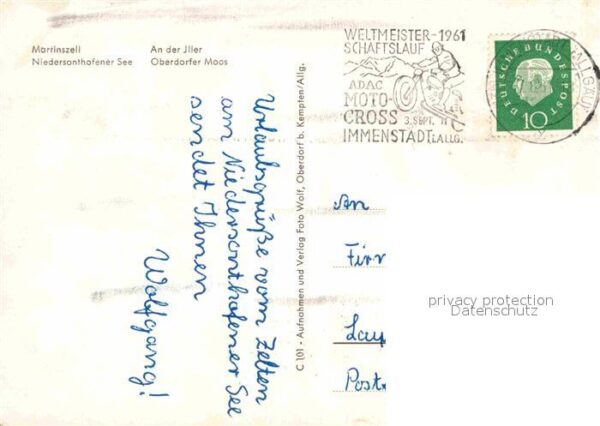 Martinszell An der Jller
Niedersonthofener See Oberdorfer Moos
WELTMEISTER-1961
SCHAFTSLAUF
ADAC
MOTO-
CROSS 3.SEPT.
IMMENSTADT i.ALLG.
DEUTSCHE BUNDESPOST
10
Urlaubsgrüße vom Zelten
am Niedersonthofener See
sendet Ihnen
Wolfgang!
C 101 - Aufnahmen und Verlag Foto Wolf, Oberdorf b. Kempten/Allg.
An
Firr
privacy protection
Datenschutz
Post